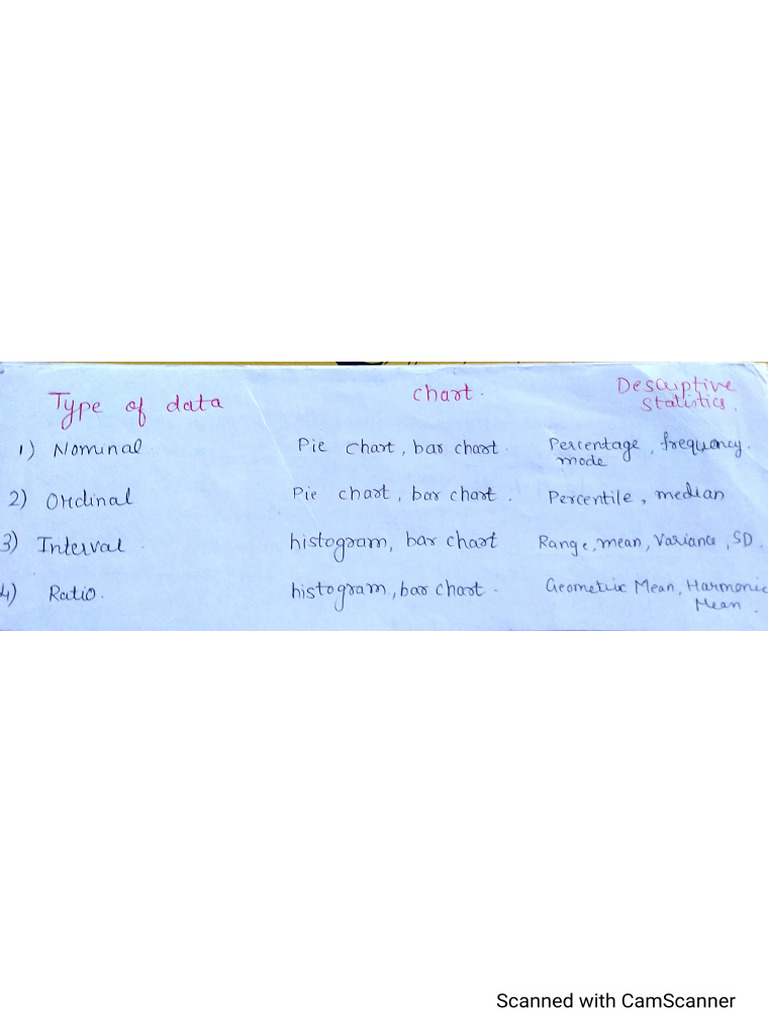 Type of data chart. Descriptive statistics.
1) Nominal. Pie chart, bar chart. Percentage, frequency. mode
2) Ordinal Pie chart, bar chart. Percentile, median
3) Interval. histogram, bar chart Range, mean, Variance, SD.
4) Ratio. histogram, bar chart. Geometric Mean, Harmonic Mean.
Scanned with CamScanner